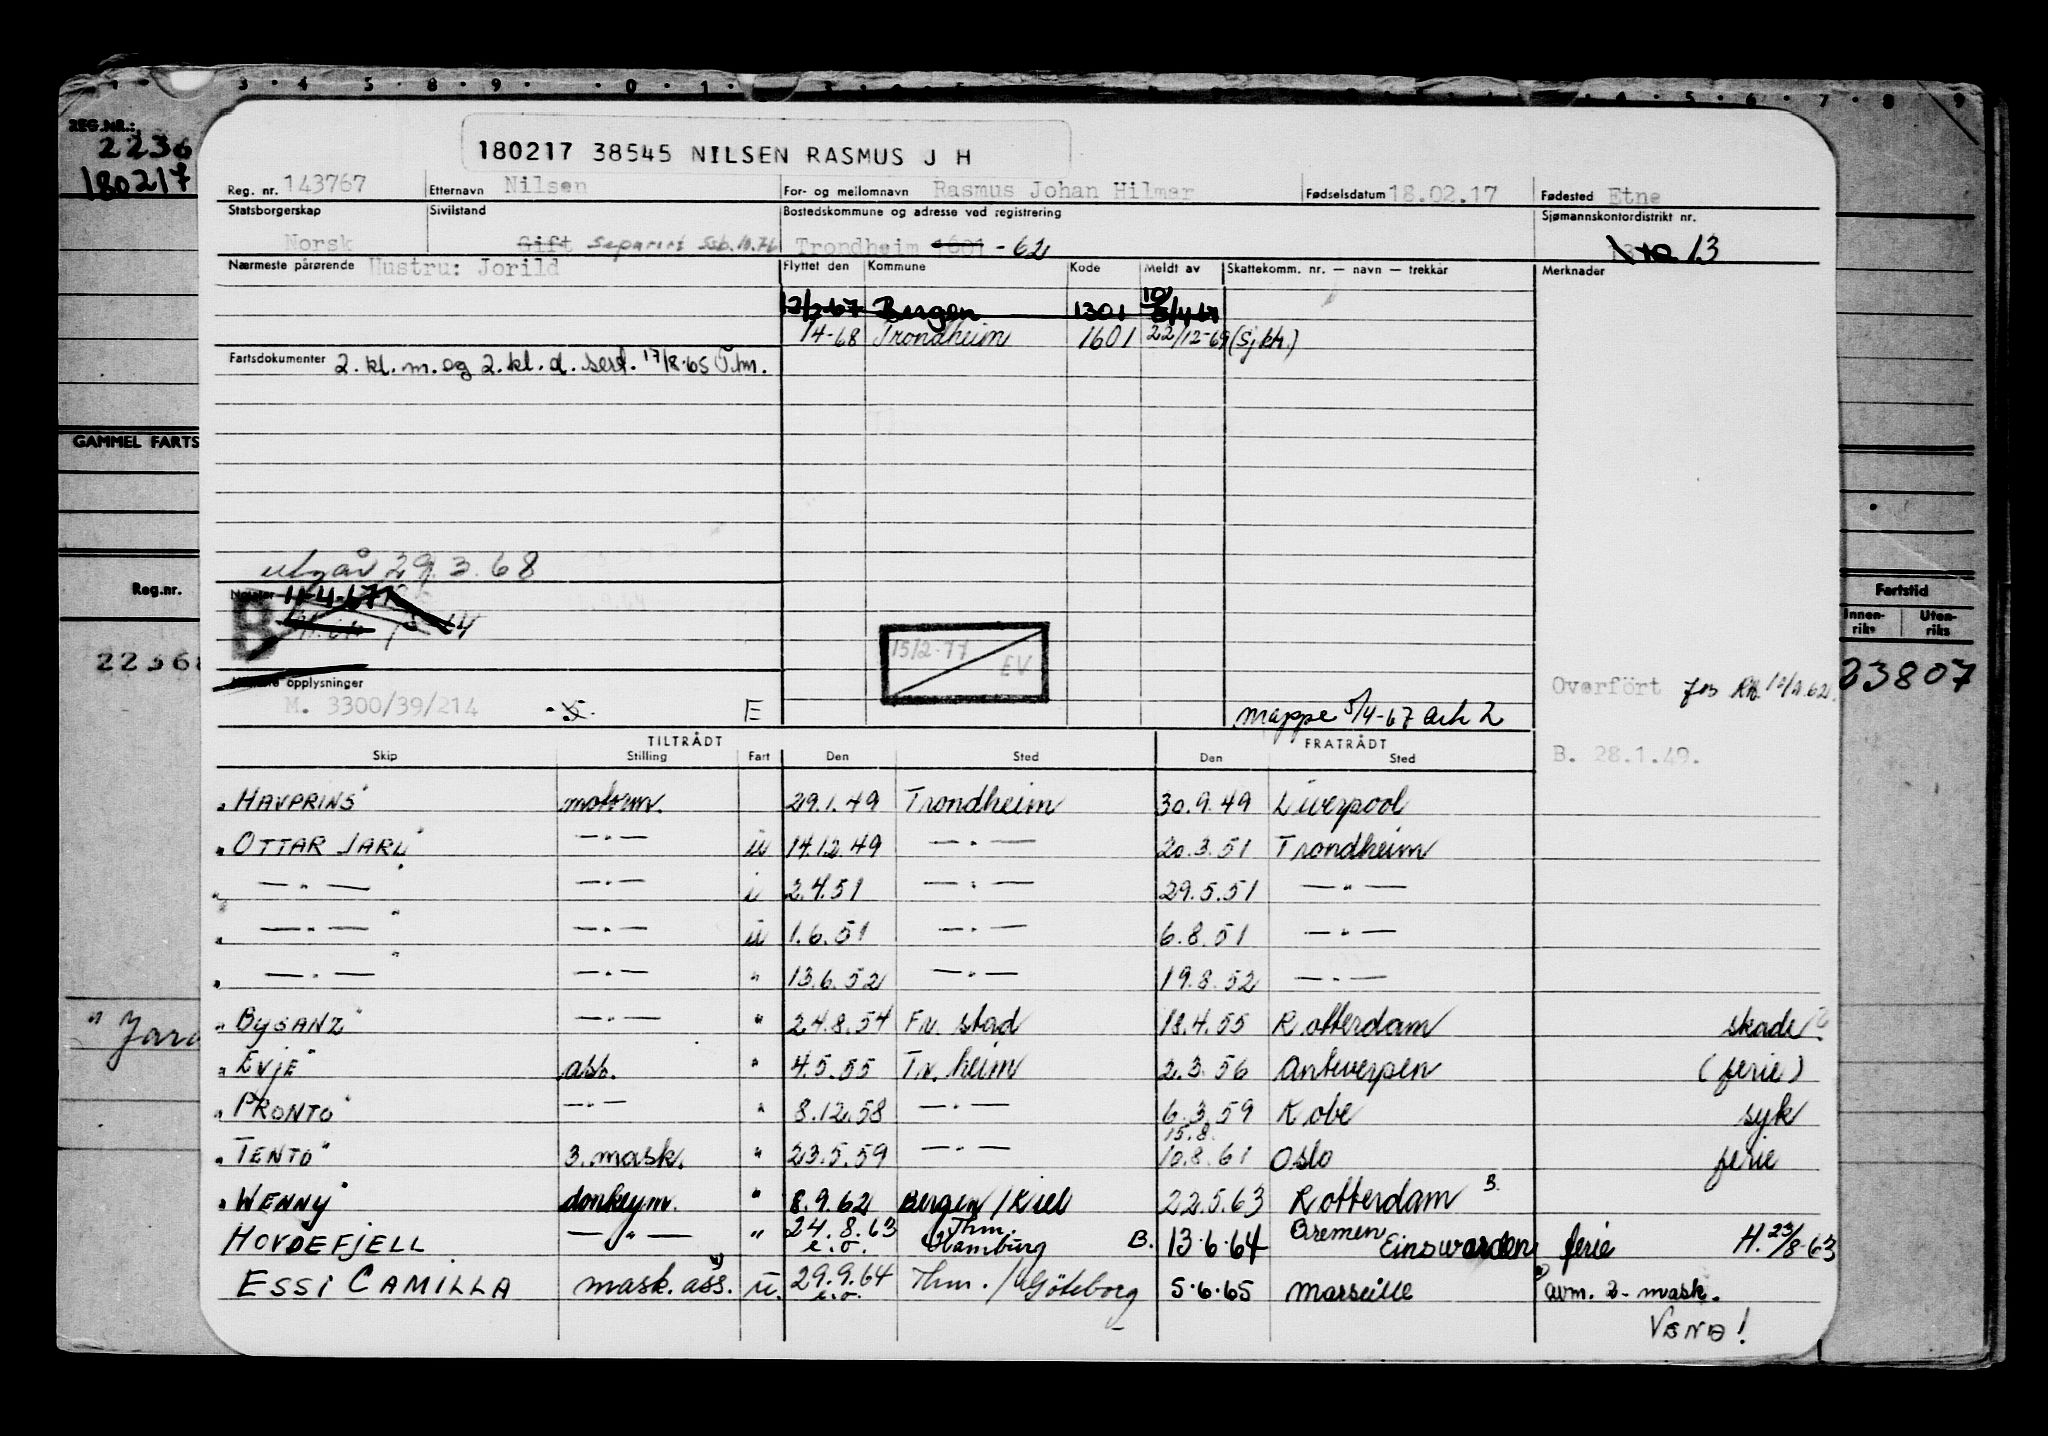 REG.NR.:
2236
180217
180217 38545 NILSEN RASMUS J H
Reg. nr. 143767 Etternavn Nilsen For- og mellomnavn Rasmus Johan Hilmar Fødselsdatum 18.02.17 Fødested Etne
Statsborgerskap Sivilstand Bostedskommune og adresse ved registrering Sjømannskontordistrikt nr.
Norsk Gift separert Ssb. 10.76 Trondheim 1601 - 62 13
Nærmeste pårørende Hustru: Jorild Flyttet den Kommune Kode Meldt av Skattekomm. nr. — navn — trekkår Merknader
12/2-67 Bergen 1301 10/4-67
1/4-68 Trondheim 1601 22/12-69 (Sj.ktr.)
Fartsdokumenter 2. kl. m. og 2. kl. d. sert. 17/8-65 T.hm.
GAMMEL FARTS
utgår 29.3.68
Reg.nr.
Fartstid
Innen- riks Uten- riks
11-4-67
B
15/2-77
EV
22368
23807
opplysninger
M. 3300/39/214 E
mappe 5/4-67 Ark 2
Overført
TILTRÅDT FRATRÅDT
Skip Stilling Fart Den Sted Den Sted
B. 28.1.49.
"HAVPRINS" motorm. 29.1.49 Trondheim 30.9.49 Liverpool
"OTTAR JARL" —"— u 14.12.49 —"— 20.3.51 Trondheim
"—"—" —"— i 2.4.51 —"— 29.5.51 —"—
"—"—" —"— u 1.6.51 —"— 6.8.51 —"—
"—"—" —"— " 13.6.52 —"— 19.8.52 —"—
"BYGANZ" —"— " 24.8.54 Fr. stad 18.4.55 Rotterdam skade
"EVJE" ass. " 4.5.55 Tr. heim 2.3.56 Antwerpen (ferie)
"PRONTO" —"— " 8.12.58 —"— 6.3.59 Kobe syk
15.8.
"TENTO" 3. mask. " 23.5.59 —"— 10.8.61 Oslo ferie
"WENNY" donkeym. " 8.9.62 Bergen/Kiel 22.5.63 Rotterdam B.
HOVDEFJELL —"— " 24.8.63 e.o. Thm. Hamburg B. 13.6.64 Bremen Einswarden ferie H. 23/8-63
ESSI CAMILLA mask. ass. u. 29.9.64 e.o. Thm./Göteborg 5.6.65 Marseille avm. 2. mask.
VEND!